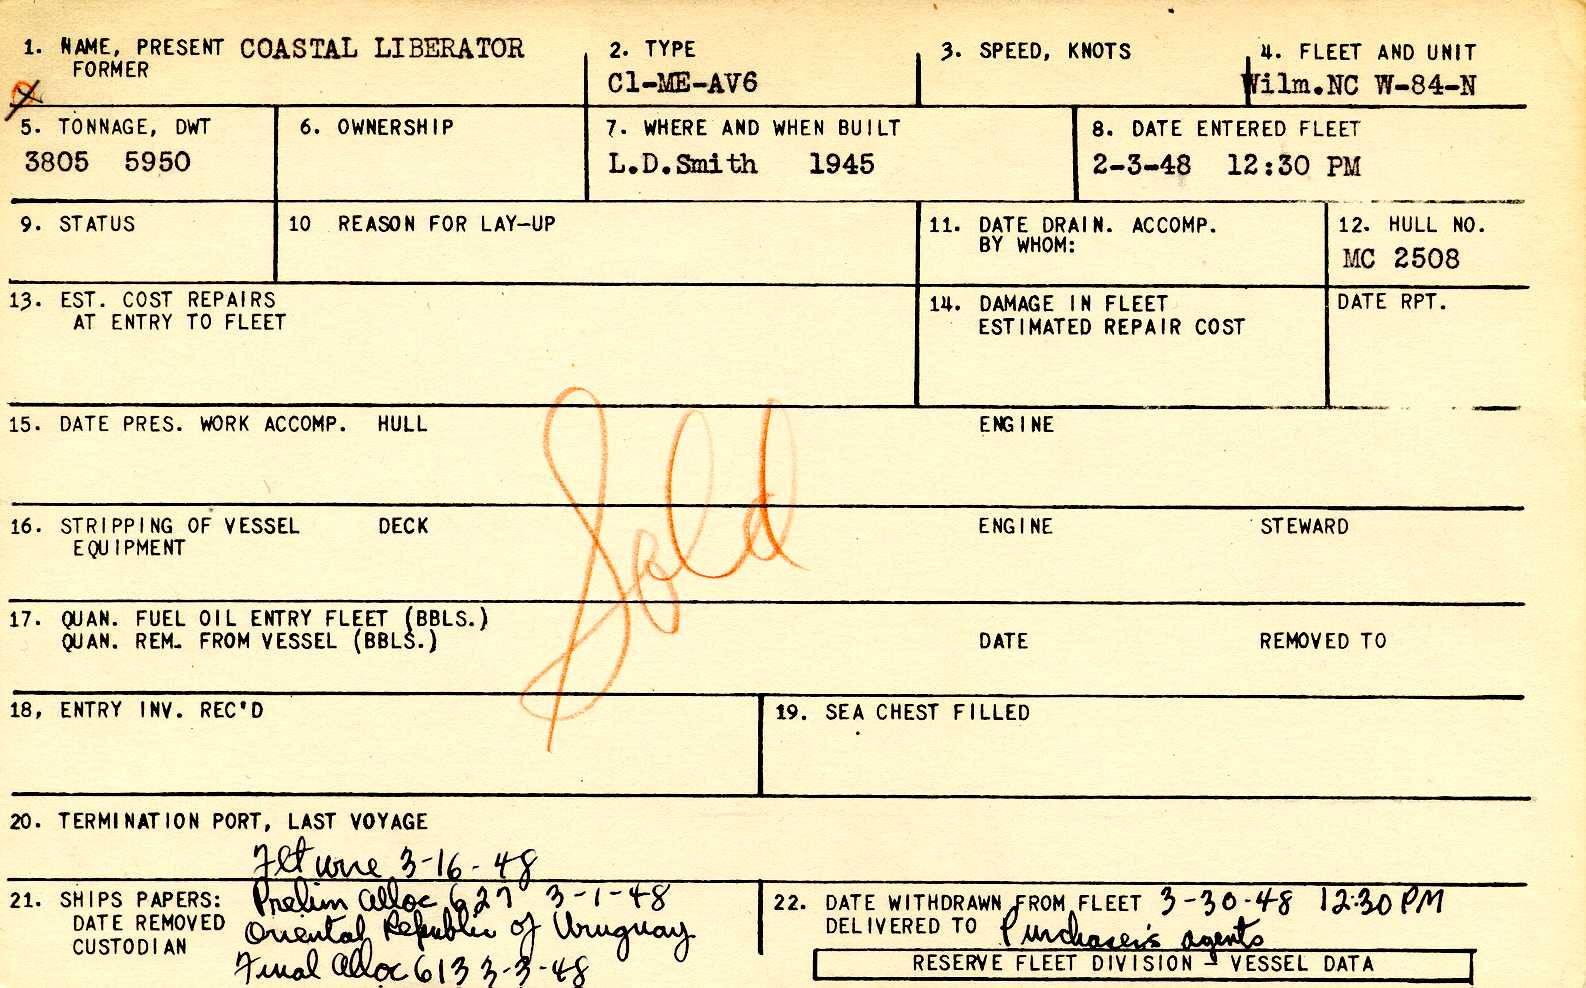 1. NAME, PRESENT COASTAL LIBERATOR
FORMER
2. TYPE
C1-ME-AV6
3. SPEED, KNOTS
4. FLEET AND UNIT
Wilm.NC W-84-N
5. TONNAGE, DWT
3805 5950
6. OWNERSHIP
7. WHERE AND WHEN BUILT
L.D.Smith 1945
8. DATE ENTERED FLEET
2-3-48 12:30 PM
9. STATUS
10 REASON FOR LAY-UP
11. DATE DRAIN. ACCOMP.
BY WHOM:
12. HULL NO.
MC 2508
13. EST. COST REPAIRS
AT ENTRY TO FLEET
14. DAMAGE IN FLEET
ESTIMATED REPAIR COST
DATE RPT.
15. DATE PRES. WORK ACCOMP. HULL ENGINE
Sold
16. STRIPPING OF VESSEL DECK ENGINE STEWARD
EQUIPMENT
17. QUAN. FUEL OIL ENTRY FLEET (BBLS.)
QUAN. REM. FROM VESSEL (BBLS.) DATE REMOVED TO
18, ENTRY INV. REC'D
19. SEA CHEST FILLED
20. TERMINATION PORT, LAST VOYAGE
Flt wire 3-16-48
21. SHIPS PAPERS: Prelim alloc 627 3-1-48
DATE REMOVED Oriental Republic of Uruguay
CUSTODIAN
Final alloc 613 3-3-48
22. DATE WITHDRAWN FROM FLEET 3-30-48 12:30 PM
DELIVERED TO Purchaser's agents
RESERVE FLEET DIVISION - VESSEL DATA